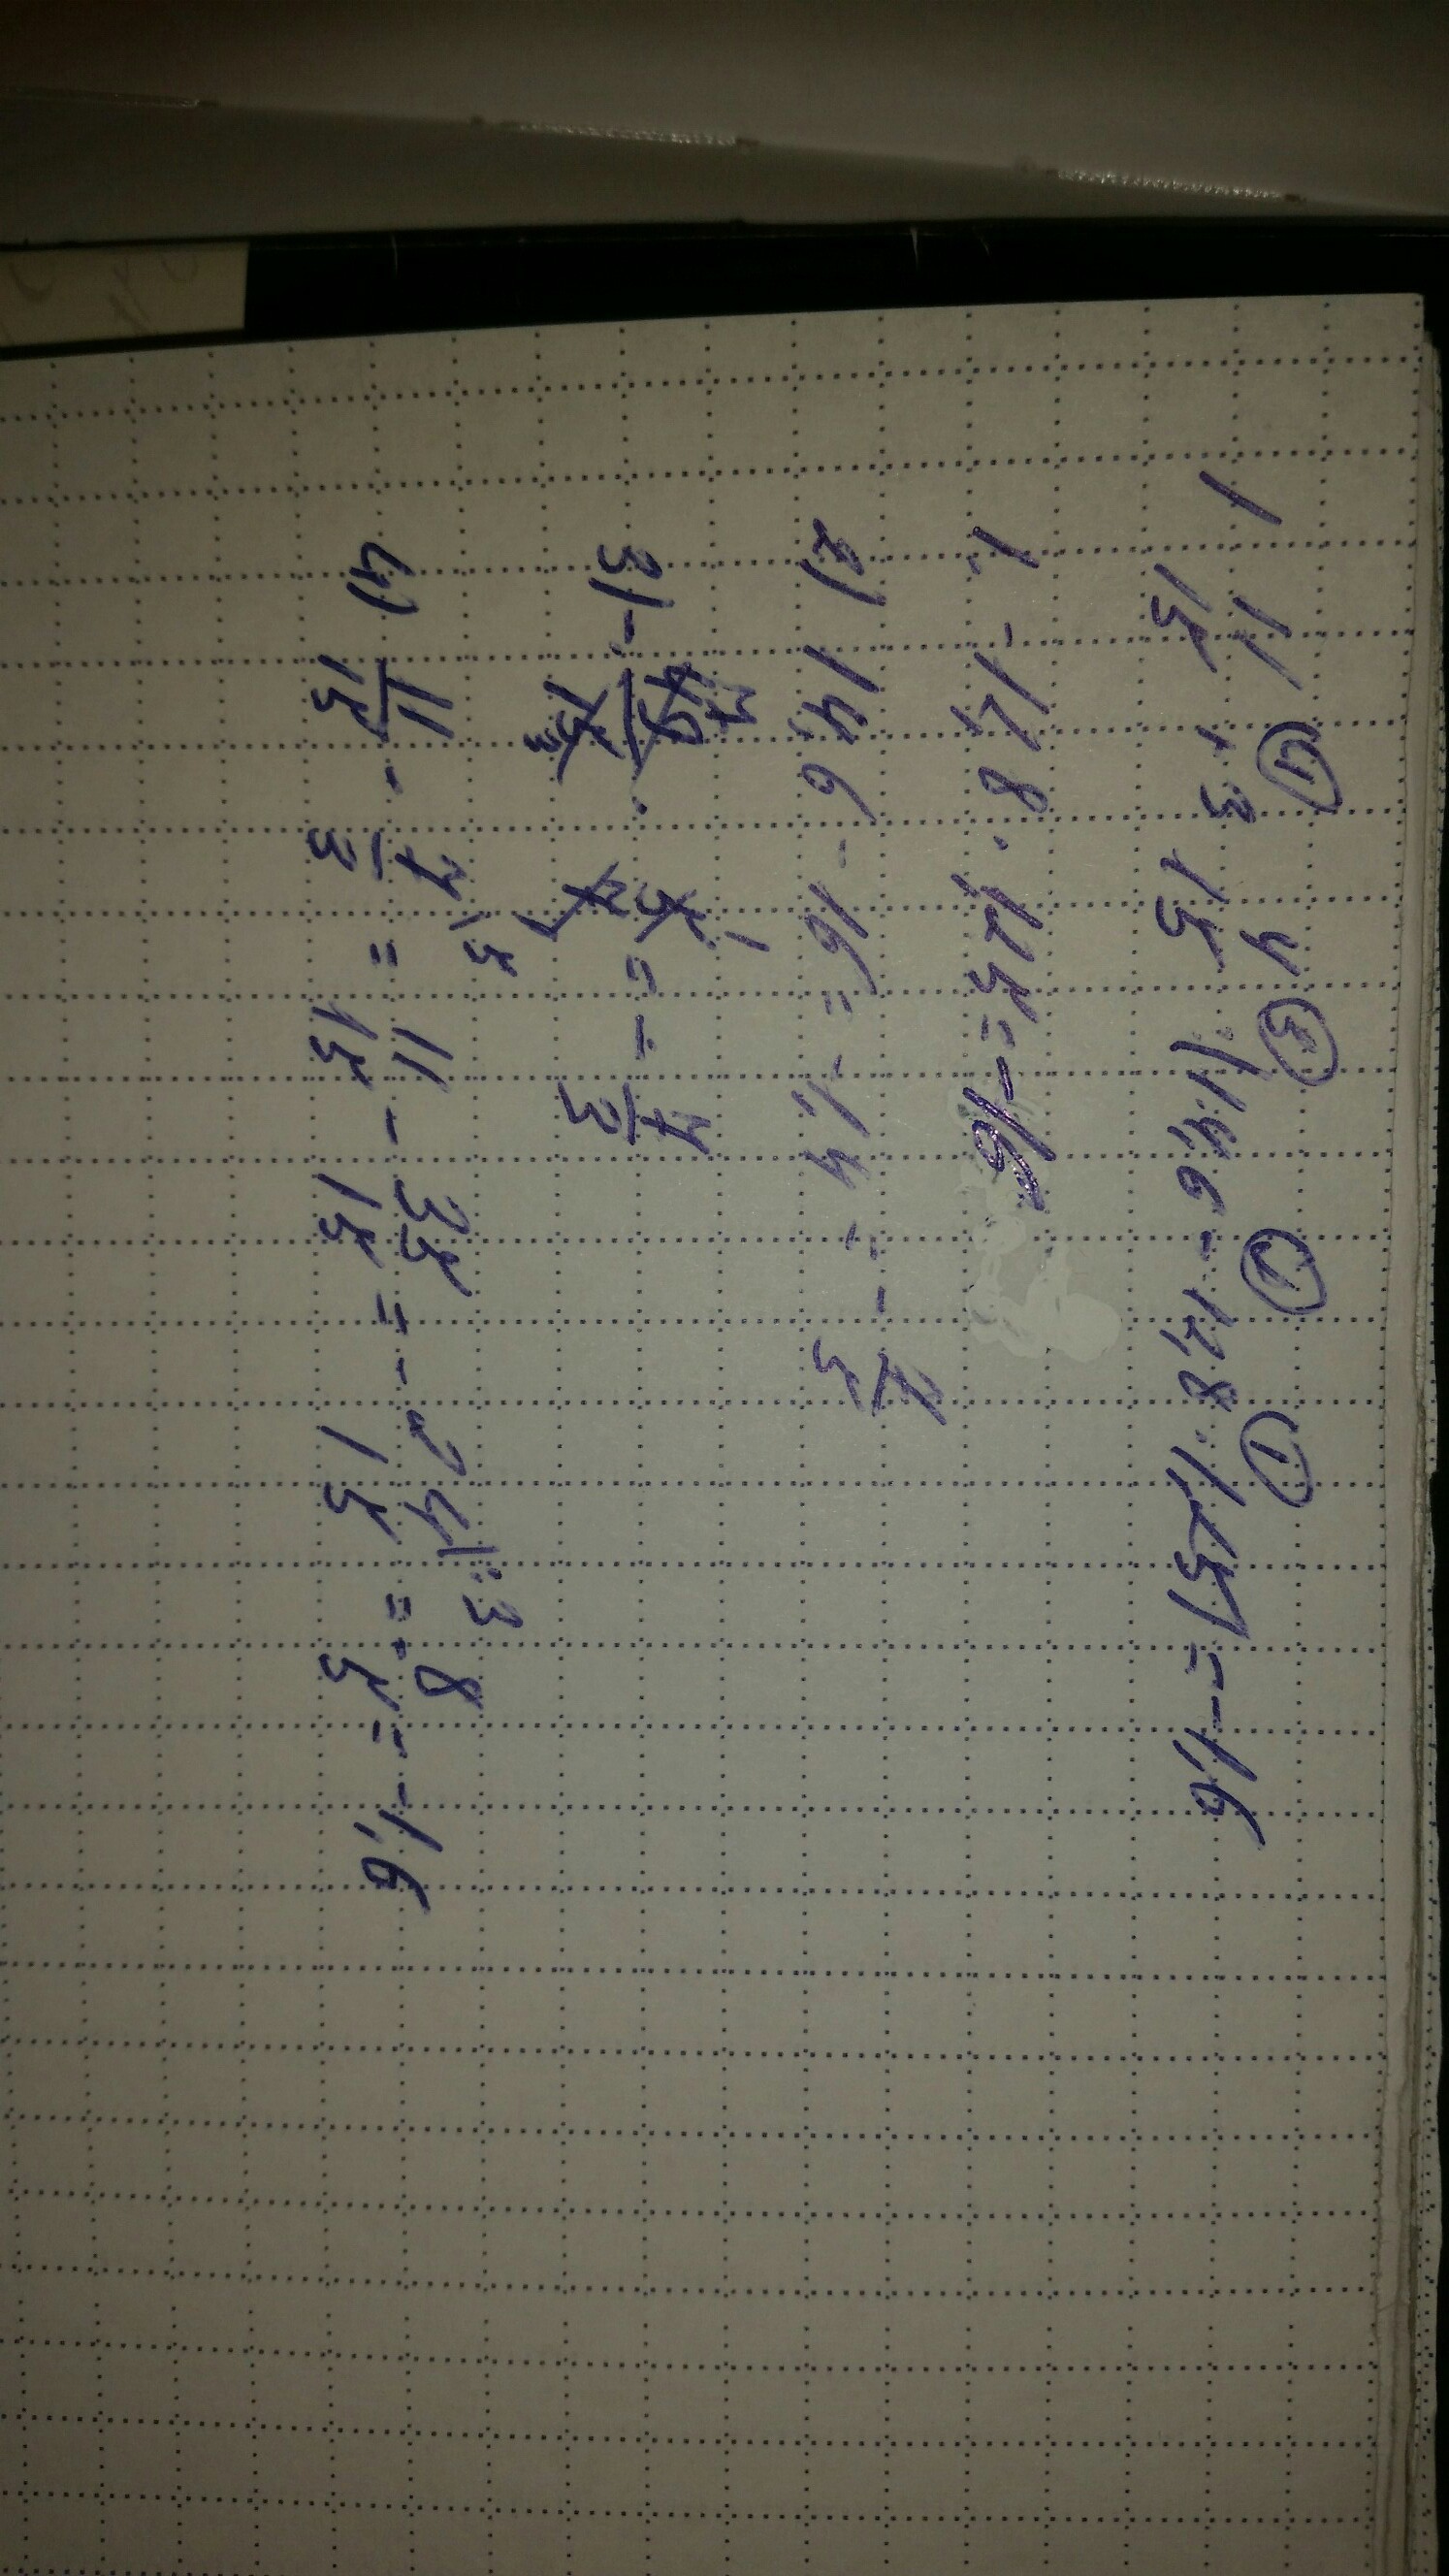 ④ ③ ② ①
1 11/15 + 3 4/15 : (1,46 - 1,28 · 1,25) = -1,6
1. 1,28 · 1,25 = -1,6
2) 1,46 - 1,6 = -1,4 = - 7/5
3) - 49/15 · 5/7 = - 7/3
4) 11/15 - 7/3 = 11/15 - 35/15 = - 24/15 = - 8/5 = -1,6